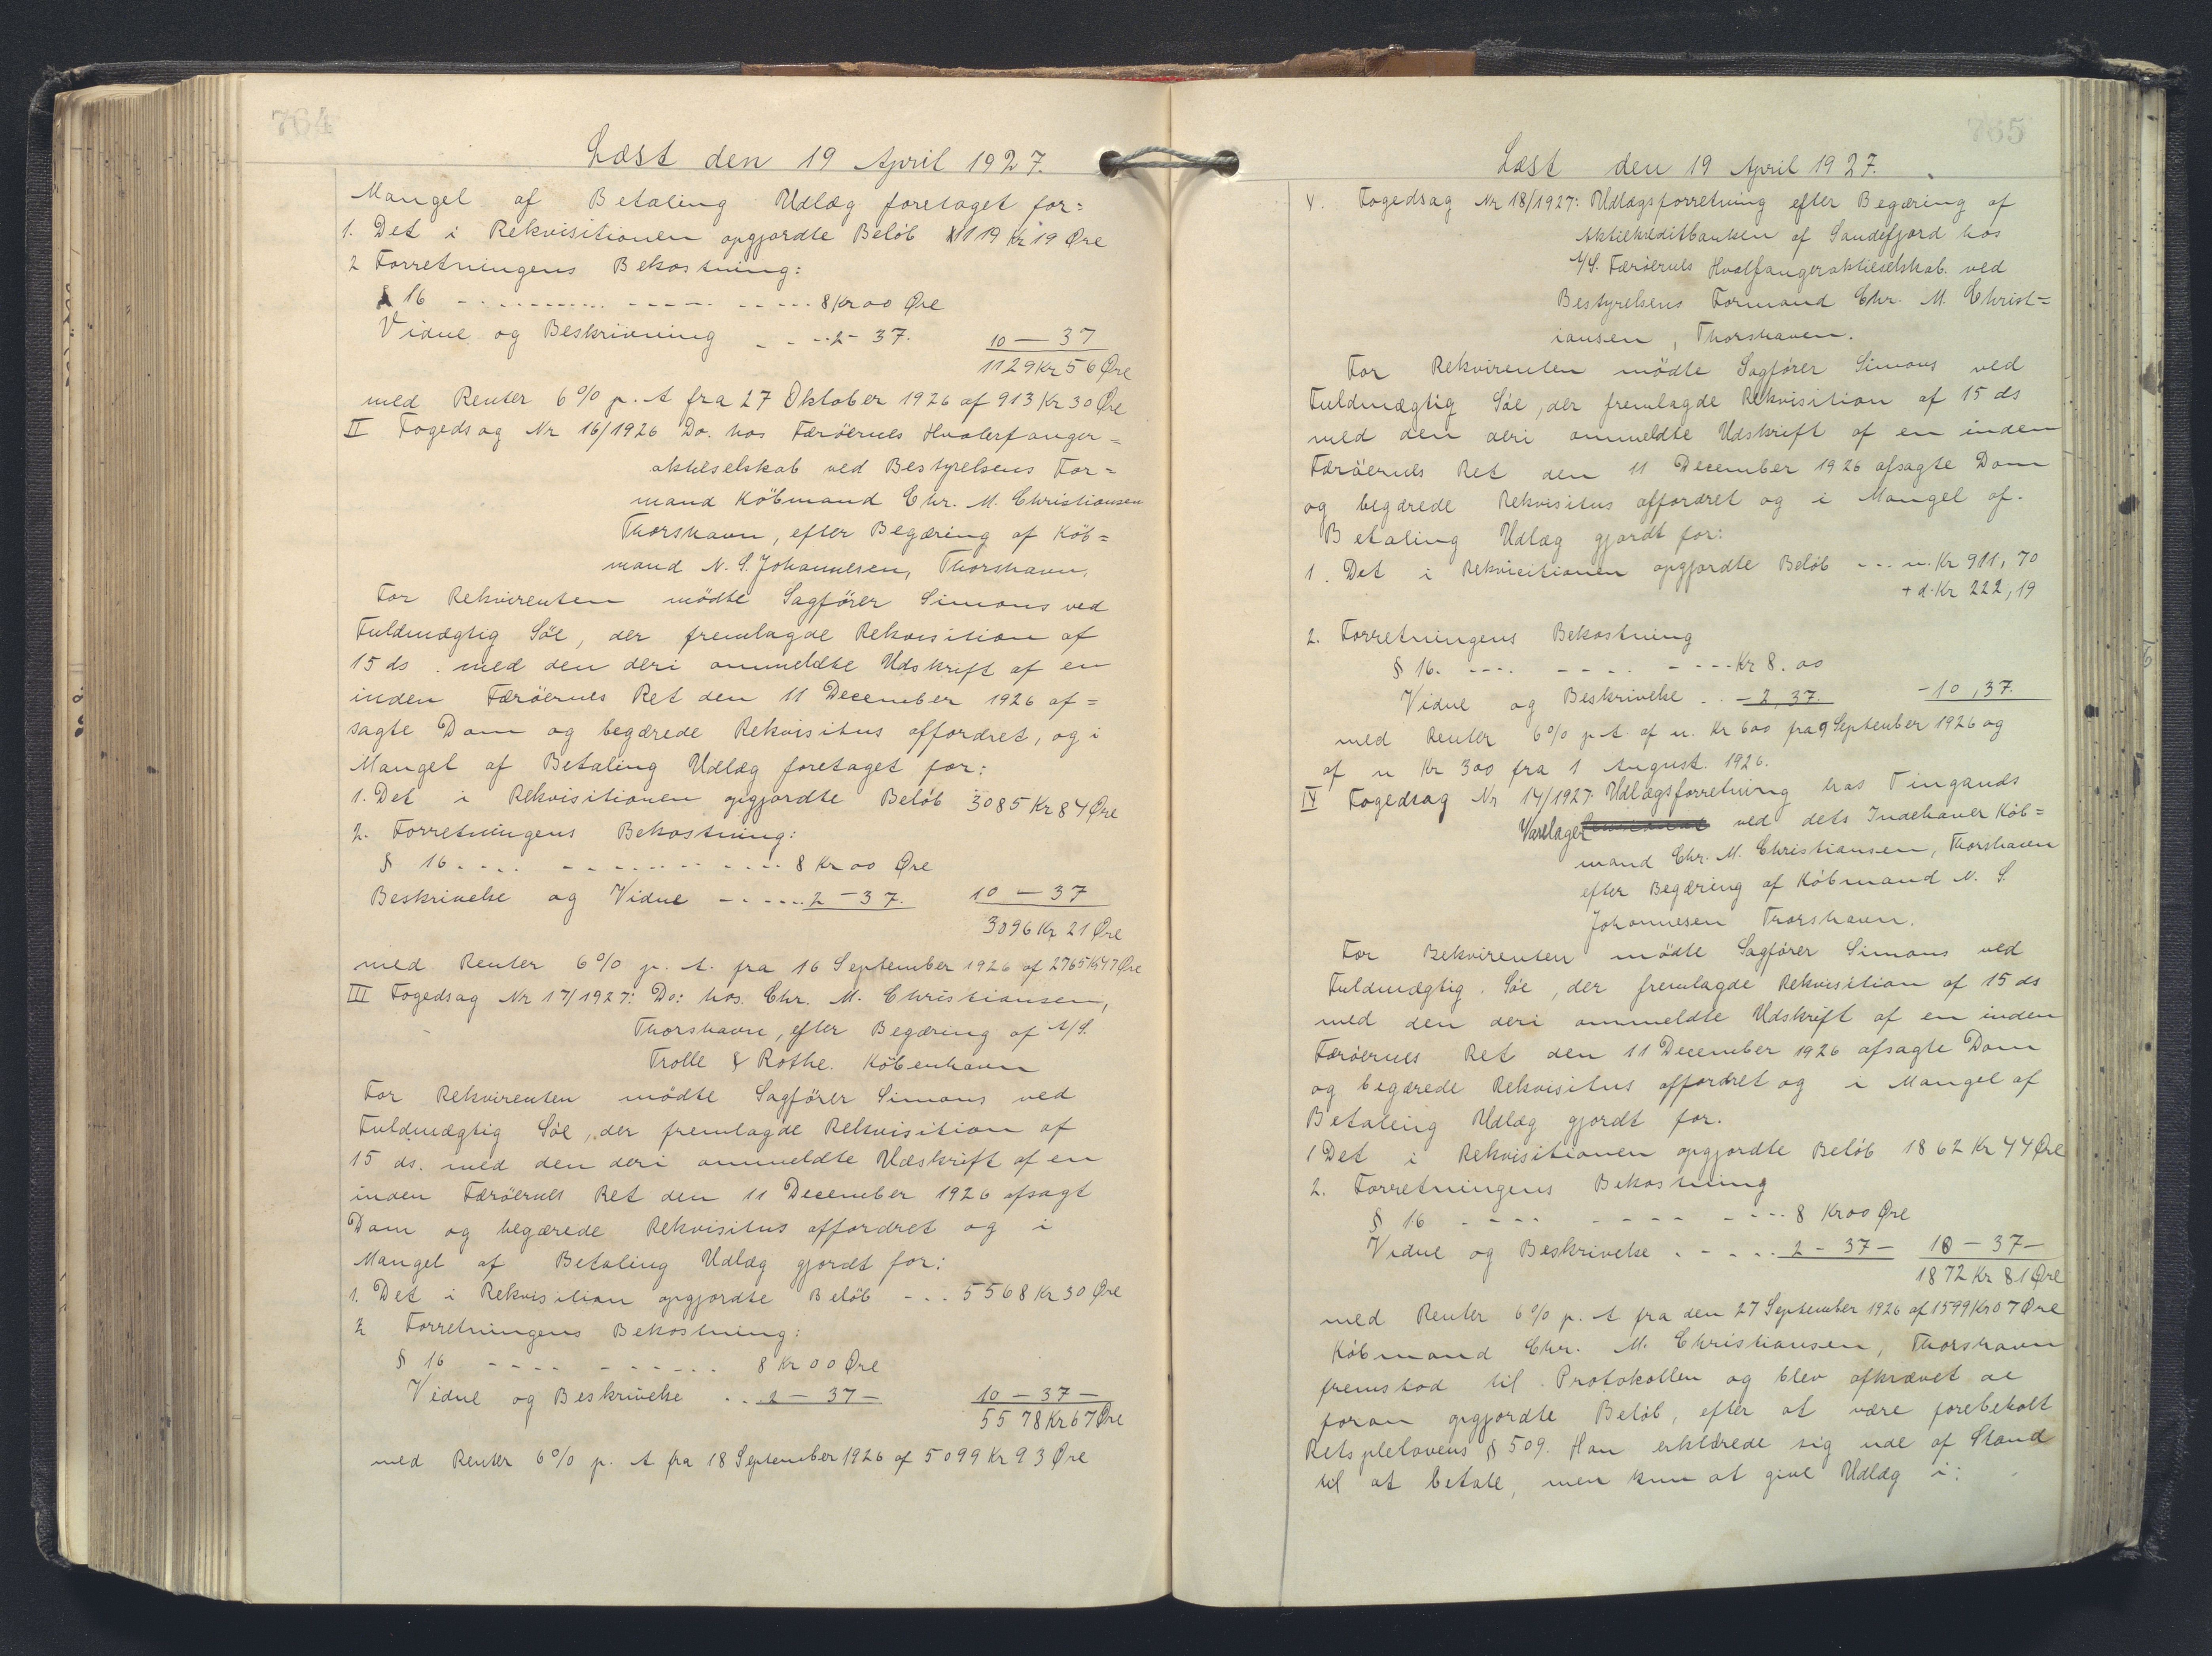 764
Læst den 19 April 1927.
Mangel af Betaling Udlæg foretaget for:
1. Det i Rekvisitionen opgjordte Beløb 1119 Kr 19 Øre
2 Forretningens Bekostning:
§ 16 - - - - - - - - - - - - 8 Kr 00 Øre
Vidne og Beskrivning - - - 2 - 37. 10 — 37
1129 Kr 56 Øre
med Renter 6% p. A fra 27 Oktober 1926 af 913 Kr 30 Øre
II Fogedsag Nr 16/1926 Do. hos Færöernes Hvalerfanger=
aktieselskab ved Bestyrelsens For=
mand Köbmand Chr. M. Christiansen
Thorshavn, efter Begæring af Köb=
mand N. S. Johannesen, Thorshavn,
For Rekvirenten mödte Sagförer Simons ved
Fuldmægtig Söe, der fremlagde Rekvisition af
15 ds. med den deri ommeldte Udskrift af en
inden Færöernes Ret den 11 December 1926 af=
sagte Dom og begærede Rekvisitus affordret, og i
Mangel af Betaling Udlæg foretaget for:
1. Det i Rekvisitionen opgjordte Beløb 3085 Kr 84 Øre
2. Forretningens Bekostning:
§ 16 - - - - - - - - - - - - 8 Kr 00 Øre
Beskrivelse og Vidne - - - - - 2 — 37. 10 — 37
3096 Kr 21 Øre
med Renter 6% p. A. fra 16 September 1926 af 2765 Kr 47 Øre
III Fogedsag Nr 17/1927: Do: hos. Chr. M. Christiansen,
Thorshavn, efter Begæring af A/S.
Trolle & Rothe. Köbenhavn
For Rekvirenten mödte Sagförer Simons ved
Fuldmægtig Söe, der fremlagde Rekvisition af
15 ds. med den deri ommeldte Udskrift af en
inden Færöernes Ret den 11 December 1926 afsagt
Dom og begærede Rekvisitus affordret og i
Mangel af Betaling Udlæg gjordt for:
1. Det i Rekvisition opgjordte Beløb - - - 5568 Kr 30 Øre
2 Forretningens Bekostning:
§ 16 - - - - - - - - - - 8 Kr 00 Øre
Vidne og Beskrivelse . . 2 — 37 — 10 — 37 —
5578 Kr 67 Øre
med Renter 6% p. A fra 18 September 1926 af 5099 Kr 93 Øre
765
Læst den 19 April 1927.
V. Fogedsag Nr 18/1927: Udlægsforretning efter Begæring af
Aktiekreditbanken af Sandefjord hos
A/S. Færöernes Hvalfangeraktieselskab. ved
Bestyrelsens Formand Chr. M. Christ=
iansen, Thorshavn.
For Rekvirenten mödte Sagförer Simons ved
Fuldmægtig Söe, der fremlagde Rekvisition af 15 ds
med den deri ommeldte Udskrift af en inden
Færöernes Ret den 11 December 1926 afsagte Dom
og begærede Rekvisitus affordret og i Mangel af.
Betaling Udlæg gjordt for:
1. Det i Rekvicitionen opgjordte Beløb - - - n. Kr 911, 70
+ d. Kr 222, 19
2. Forretningens Bekostning
§ 16. - - - - - - - - - - - - Kr 8. 00
Vidne og Beskrivelse . . — 2, 37. — 10, 37.
med Renter 6% p. A. af n. Kr 600 fra 9 September 1926 og
af n Kr 300 fra 1 August. 1926.
IV Fogedsag Nr 14/1927. Udlægsforretning hos Tingands
Varelager ved dets Indehaver Köb=
mand Chr. M. Christiansen, Thorshavn
efter Begæring af Köbmand N. S.
Johannesen Thorshavn.
For Rekvirenten mödte Sagförer Simons ved
Fuldmægtig. Söe, der fremlagde Rekvisition af 15 ds
med den deri ommeldte Udskrift af en inden
Færöernes Ret den 11 December 1926 afsagte Dom
og begærede Rekvisitus affordret og i Mangel af
Betaling Udlæg gjordt for.
1 Det i Rekvisitionen opgjordte Beløb 1862 Kr 44 Øre
2. Forretningens Bekostning
§ 16 - - - - - - - - - - - - 8 Kr 00 Øre
Vidne og Beskrivelse . - - . . 2 — 37 — 10 — 37 —
1872 Kr 81 Øre
med Renter 6% p. A fra den 27 September 1926 af 1599 Kr 07 Øre
Köbmand Chr. M. Christiansen, Thorshavn
fremstod til Protokollen og blev afkrævet de
foran opgjordte Beløb, efter at være foreholdt
Retsplelovens § 509. Han erklærede sig ude af Stand
til at betale, men kun at give Udlæg i: